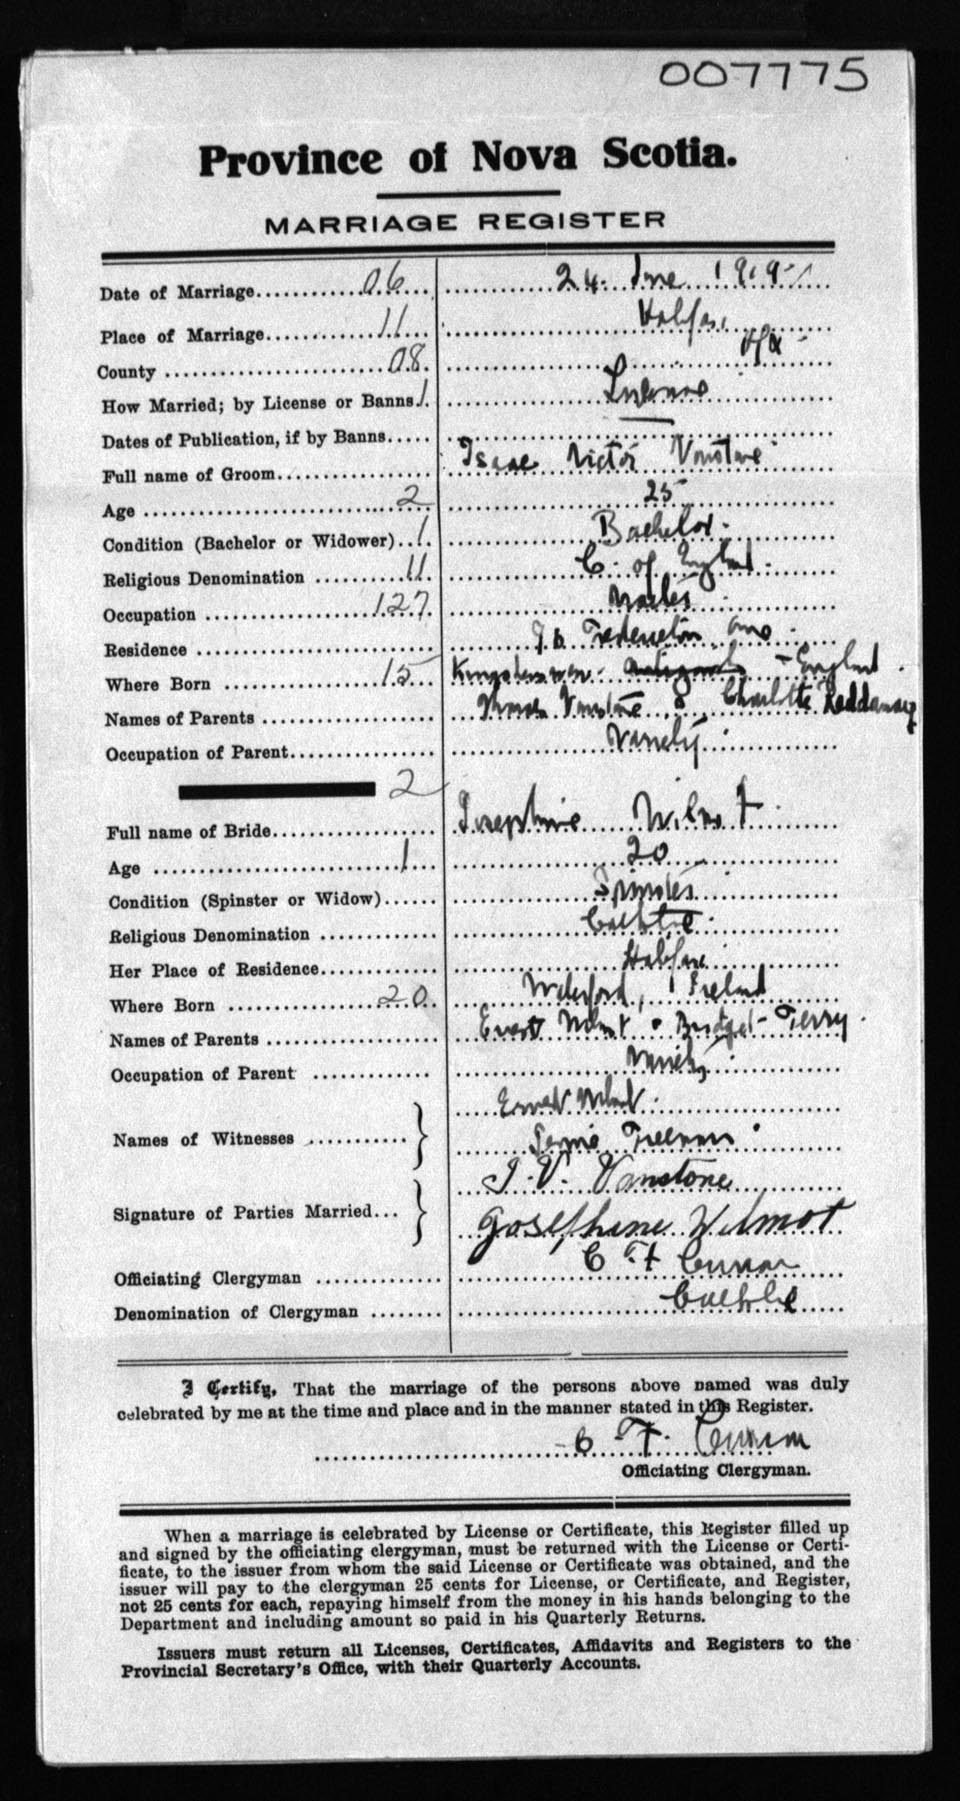 007775
Province of Nova Scotia.
MARRIAGE REGISTER
Date of Marriage 06 24 June 1919
Place of Marriage 11 Halifax
County 08 Hfx
How Married; by License or Banns 1 License
Dates of Publication, if by Banns —
Full name of Groom Isaac Victor Vanstone
Age 2 25
Condition (Bachelor or Widower) 1 Bachelor
Religious Denomination 11 C. of England
Occupation 127
Residence Fredericton
Where Born 15 England
Names of Parents Vanstone & Charlotte Reddaway
Occupation of Parent
2
Full name of Bride Josephine Wilmot
Age 1 20
Condition (Spinster or Widow) Spinster
Religious Denomination Catholic
Her Place of Residence Halifax
Where Born 20 Waterford, Ireland
Names of Parents Ernest Wilmot & Bridget Terry
Occupation of Parent
Ernest Wilmot
Names of Witnesses
I. V. Vanstone
Signature of Parties Married
Josephine Wilmot
Officiating Clergyman C F Curran
Denomination of Clergyman Catholic
I Certify, That the marriage of the persons above named was duly
celebrated by me at the time and place and in the manner stated in this Register.
C F. Curran
Officiating Clergyman.
When a marriage is celebrated by License or Certificate, this Register filled up
and signed by the officiating clergyman, must be returned with the License or Certi-
ficate, to the issuer from whom the said License or Certificate was obtained, and the
issuer will pay to the clergyman 25 cents for License, or Certificate, and Register,
not 25 cents for each, repaying himself from the money in his hands belonging to the
Department and including amount so paid in his Quarterly Returns.
Issuers must return all Licenses, Certificates, Affidavits and Registers to the
Provincial Secretary's Office, with their Quarterly Accounts.